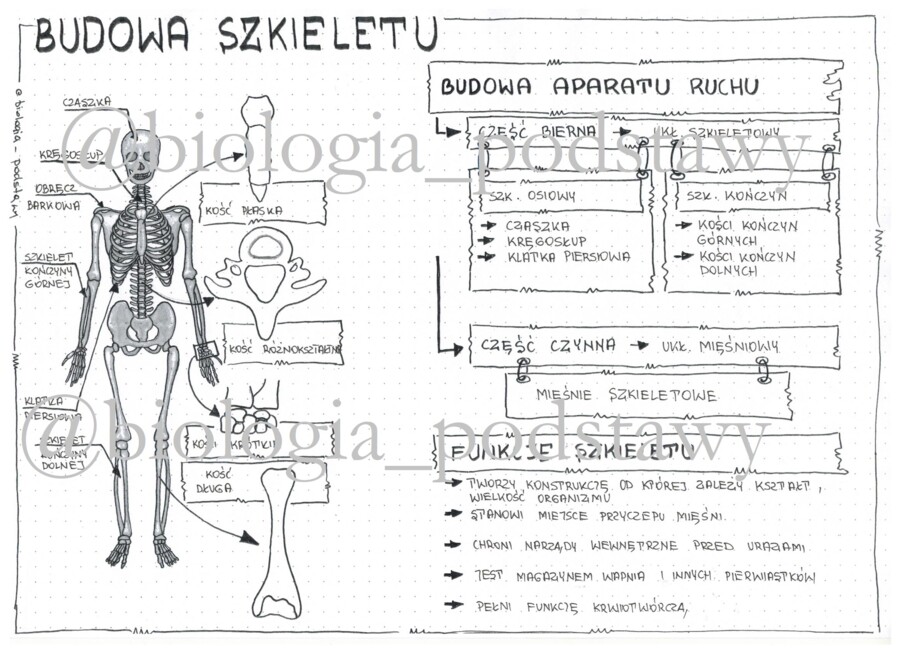 BUDOWA SZKIELETU
@biologia_podstawy
CZASZKA
KRĘGOSŁUP
OBRĘCZ
BARKOWA
SZKIELET
KOŃCZYNY
GÓRNEJ
KLATKA
PIERSIOWA
SZKIELET
KOŃCZYNY
DOLNEJ
KOŚĆ PŁASKA
KOŚĆ RÓŻNOKSZTAŁTNA
KOŚĆ KRÓTKA
KOŚĆ
DŁUGA
BUDOWA APARATU RUCHU
CZĘŚĆ BIERNA → UKŁ. SZKIELETOWY
@biologia_podstawy
SZK. OSIOWY
→ CZASZKA
→ KRĘGOSŁUP
→ KLATKA PIERSIOWA
SZK. KOŃCZYN
→ KOŚCI KOŃCZYN
GÓRNYCH
→ KOŚCI KOŃCZYN
DOLNYCH
CZĘŚĆ CZYNNA → UKŁ. MIĘŚNIOWY
MIĘŚNIE SZKIELETOWE
@biologia_podstawy
FUNKCJE SZKIELETU
→ TWORZY KONSTRUKCJĘ OD KTÓREJ ZALEŻY KSZTAŁT,
WIELKOŚĆ ORGANIZMU
→ STANOWI MIEJSCE PRZYCZEPU MIĘŚNI.
→ CHRONI NARZĄDY WEWNĘTRZNE PRZED URAZAMI
→ JEST MAGAZYNEM WAPNIA I INNYCH PIERWIASTKÓW
→ PEŁNI FUNKCJĘ KRWIOTWÓRCZĄ,